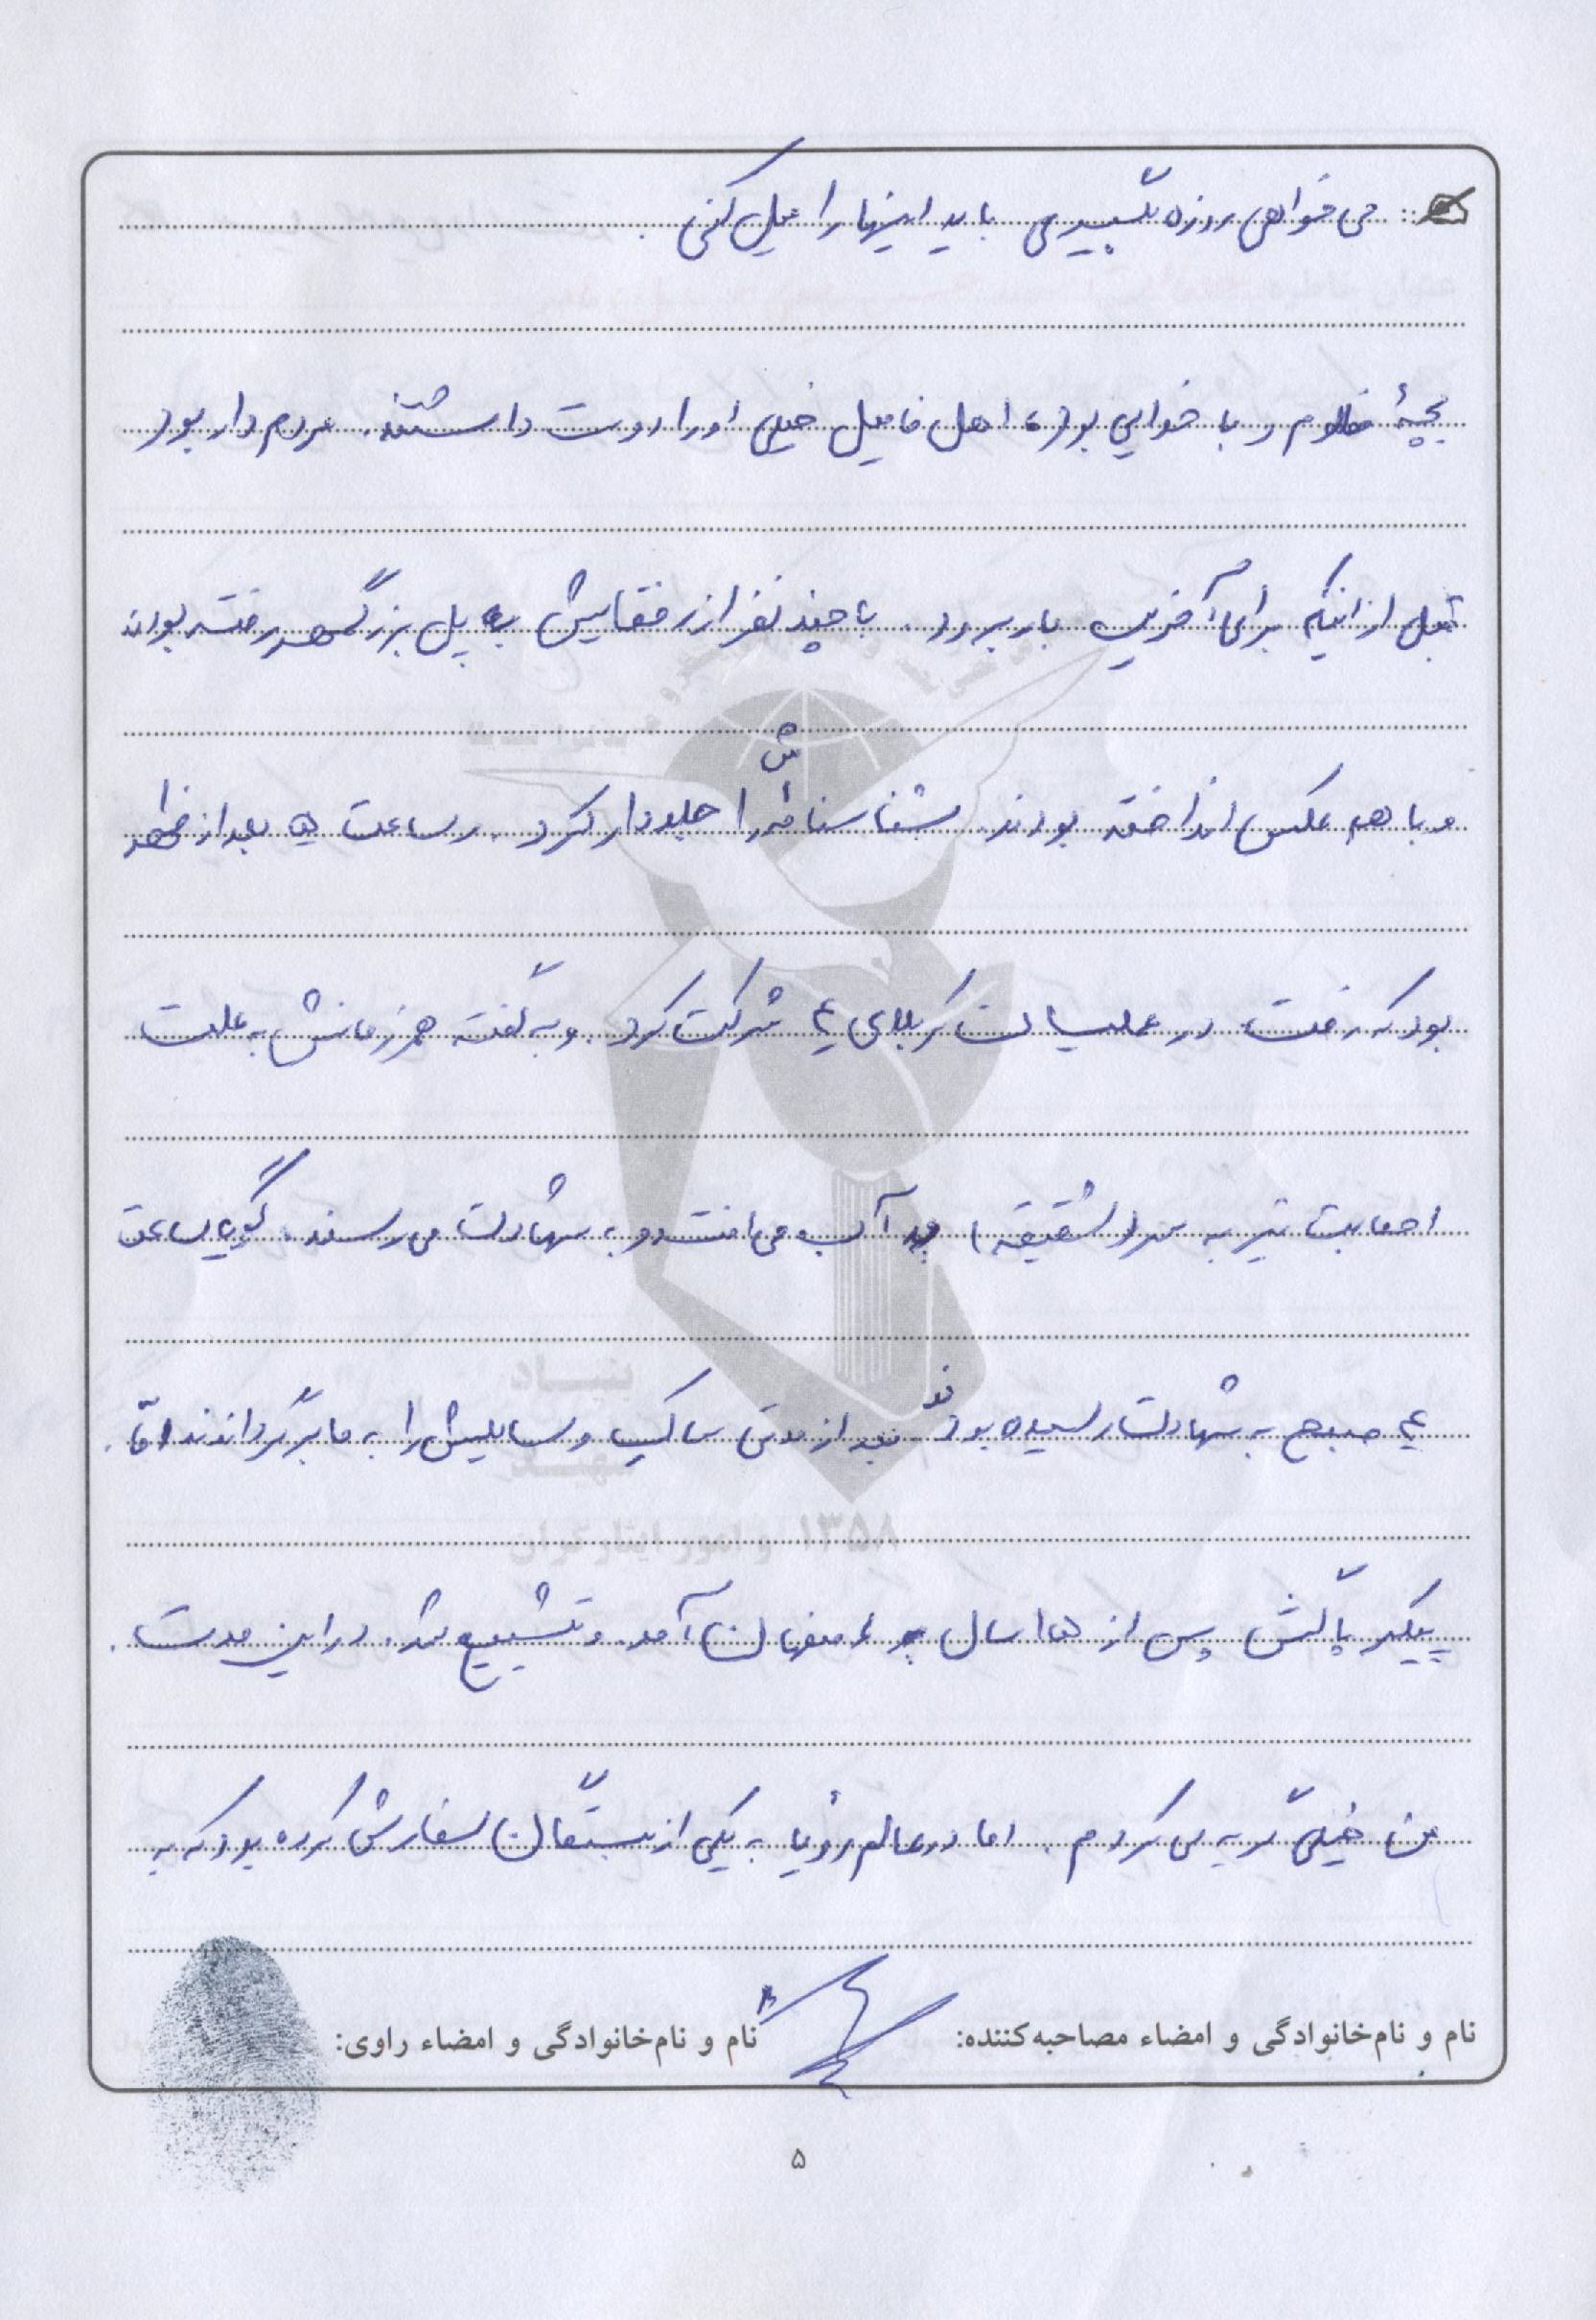 می خواهی روزه بگیری باید اینها را عمل کنی.
بچهٔ مظلوم و با خدایی بود، اهل فامیل خیلی او را دوست داشتند. مردم دار بود
قبل از اینکه برای آخرین بار برود. با چند نفر از رفقایش به پل بزرگمهر رفته بودند
و با هم عکس انداخته بودند. شناسنامه اش را جلد دار کرد. ساعت ۵ بعد از ظهر
بود که رفت. در عملیات کربلای ۴ شرکت کرد. و به گفته همرزمانش به علت
اصابت تیر به سر (شقیقه) به آب می افتد و به شهادت می رسند. گویا ساعت
۴ صبح به شهادت رسیده بودند بعد از مدتی ساک و وسایلش را به ما برگرداندند امّا
پیکر پاکش پس از ۱۵ سال به اصفهان آمد. و تشییع شد. در این مدت
من خیلی گریه می کردم. اما در عالم رؤیا به یکی از بستگان سفارش کرده بود که به
بنیاد
شهید
و امور ایثارگران ۱۳۵۸
نام و نام‌خانوادگی و امضاء مصاحبه‌کننده:
نام و نام‌خانوادگی و امضاء راوی:
۵